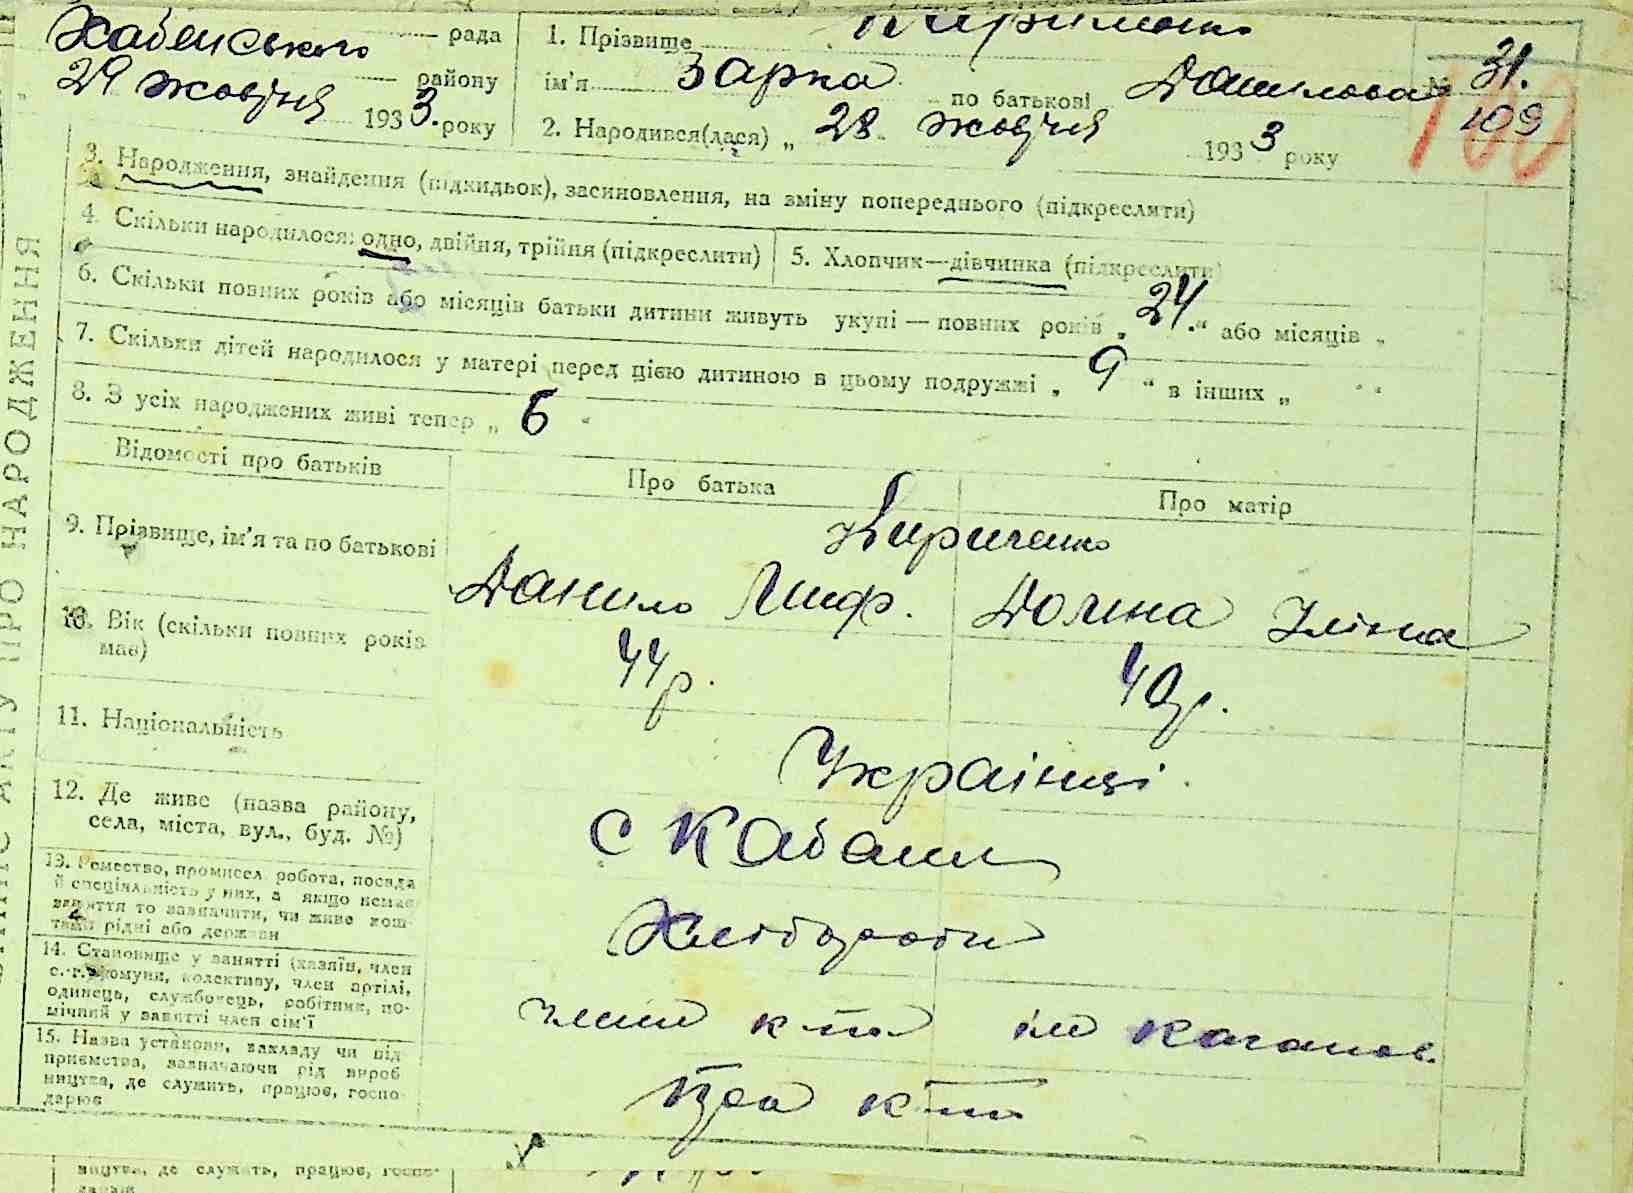 Хабенського рада
району
29 жовтня 1933. року
1. Прізвище Кириченко
ім'я Зарка по батькові Данилова № 31.
109
2. Народився(лася) „ 28 жовтня 1933 року
3. Народження, знайдення (підкидьок), засиновлення, на зміну попереднього (підкреслити)
4. Скільки народилося: одно, двійня, трійня (підкреслити)
5. Хлопчик—дівчинка (підкреслити)
6. Скільки повних років або місяців батьки дитини живуть укупі — повних років „ 24. “ або місяців „
7. Скільки дітей народилося у матері перед цією дитиною в цьому подружжі „ 9 “ в інших „ “
8. З усіх народжених живі тепер „ 6 “
Відомості про батьків
Про батька
Про матір
9. Прізвище, ім'я та по батькові
Кириченко
Данило
10. Вік (скільки повних років
має)
44р.
40р.
11. Національність
Українці.
12. Де живе (назва району,
села, міста, вул., буд. №)
с Кабани
13. Ремество, промисел, робота, посада
й спеціяльність у них, а якщо немає
заняття то зазначити, чи живе кош-
тами рідні або держави
Хлібороби
14. Становище у занятті (хазяїн, член
с.-г. комуни, колективу, член артілі,
одинець, службовець, робітник, по-
мічний у занятті член сім'ї
члени к-пу ім Каганов.
15. Назва установи, закладу чи під-
приємства, зазначаючи рід вироб-
ництва, де служить, працює, госпо-
дарює
ництва, де служить, працює, госпо-
дарює